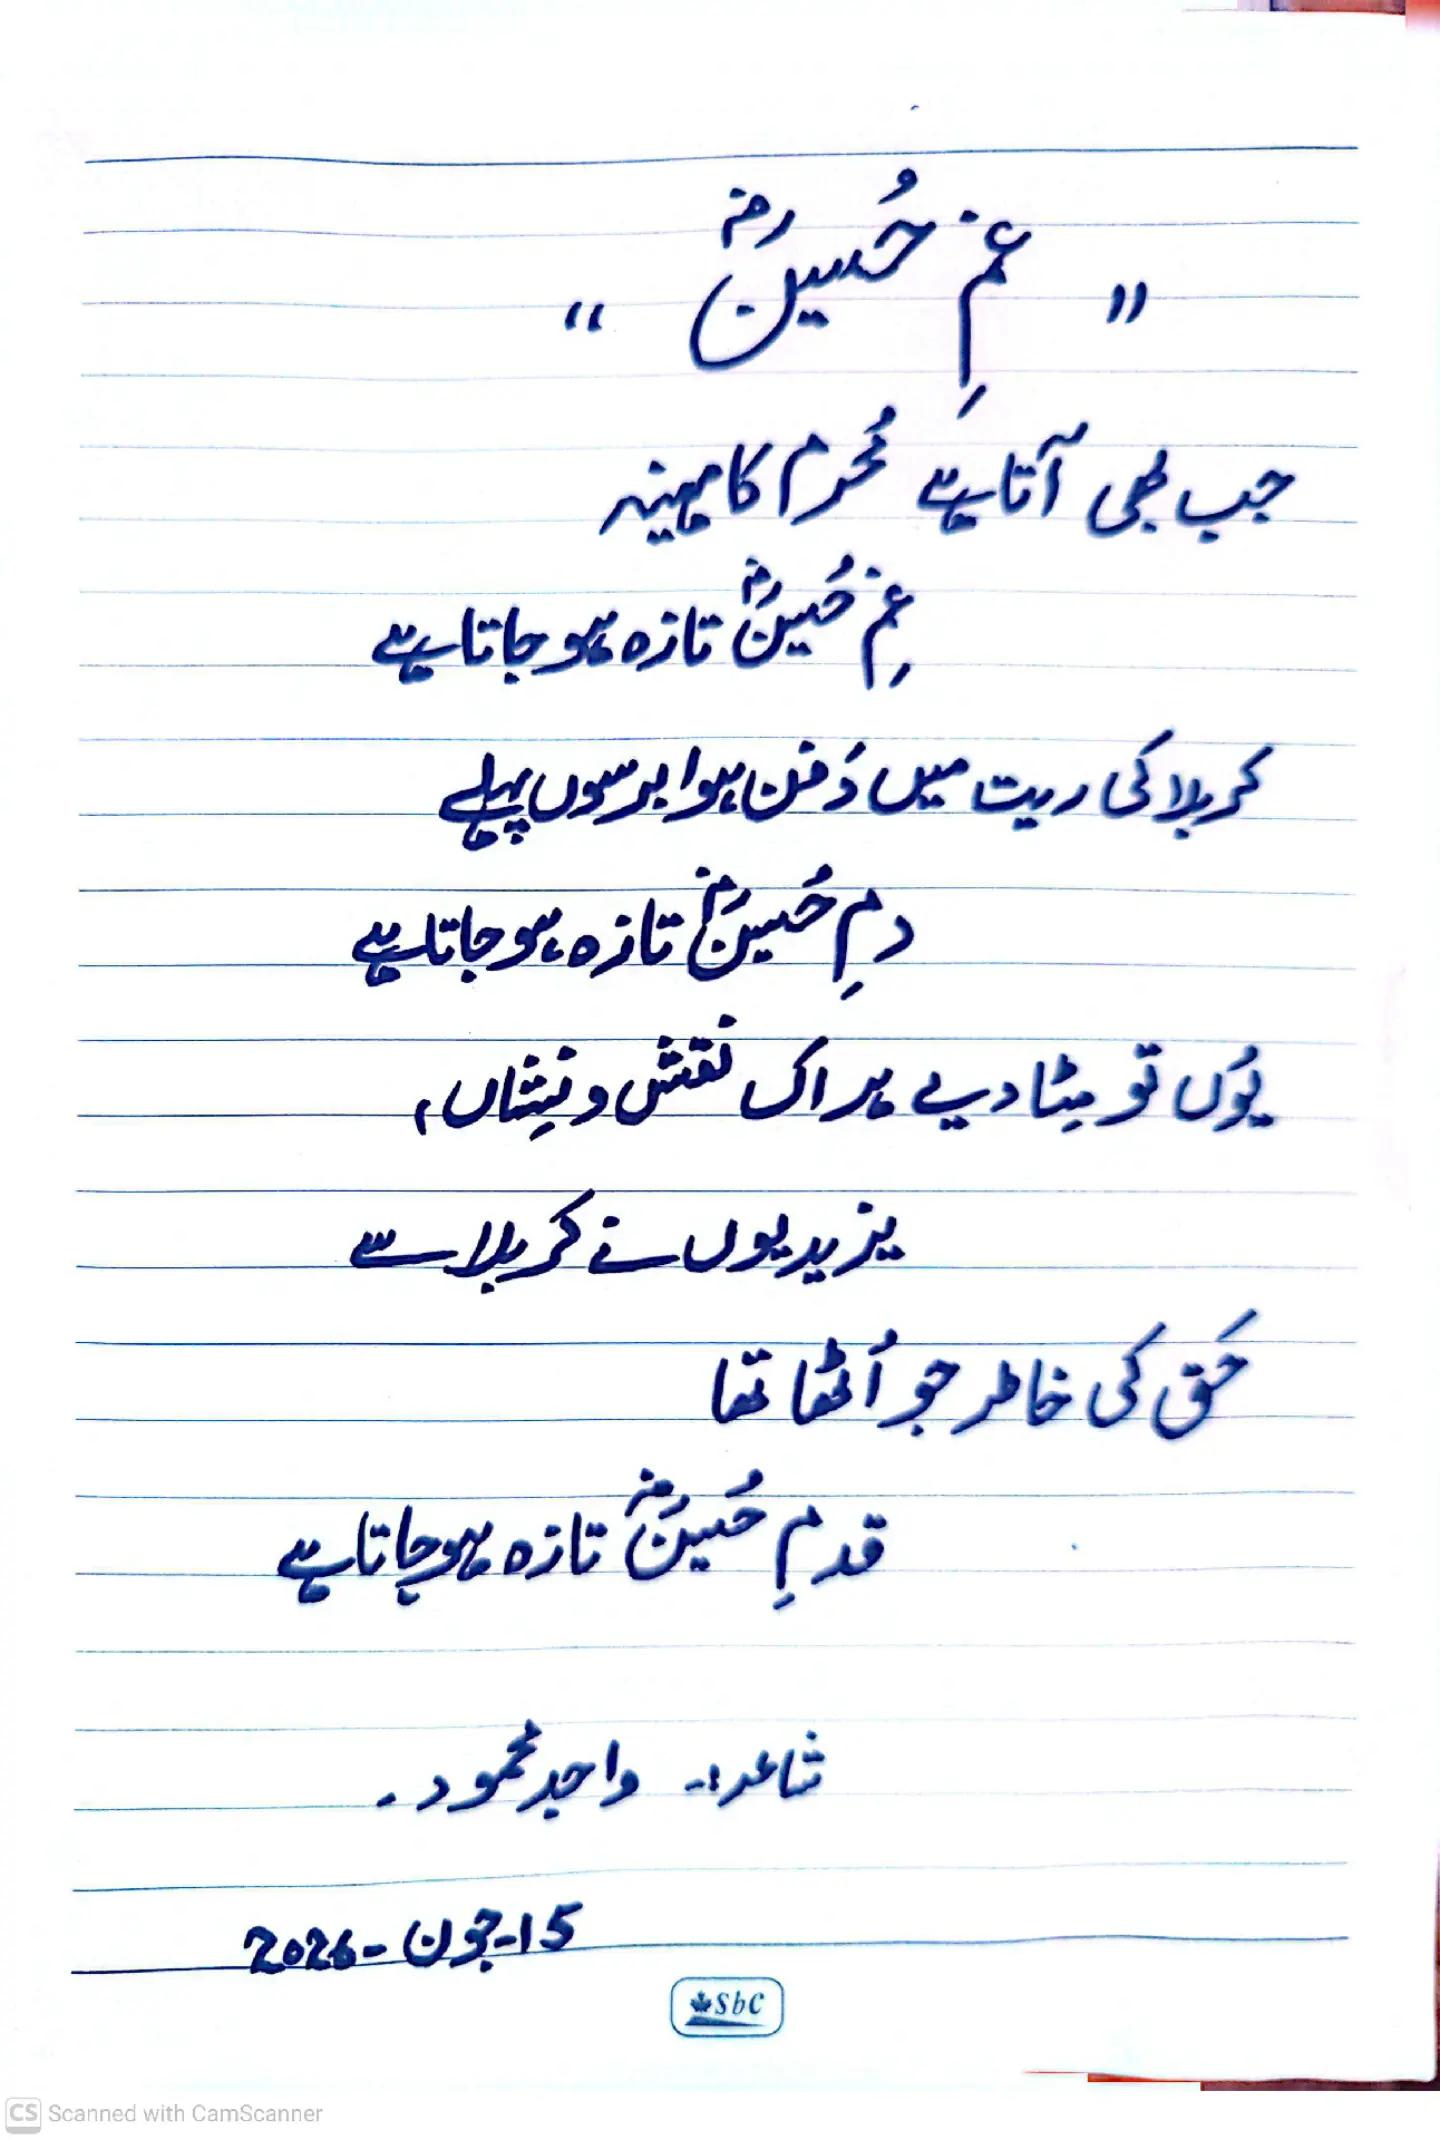 " غمِ حُسینؓ "
جب بھی آتا ہے مُحرم کا مہینہ
غمِ حُسینؓ تازہ ہو جاتا ہے
کربلا کی ریت میں دَفن ہوا برسوں پہلے
دمِ حُسینؓ تازہ ہو جاتا ہے
یُوں تو مِٹا دیے ہر اک نقش و نِشاں،
یزیدیوں نے کربلا سے
حَق کی خاطر جو اُٹھا تھا
قدمِ حُسینؓ تازہ ہو جاتا ہے
شاعر:۔ واجد محمود۔
15-جون-2026
sbc
CS Scanned with CamScanner